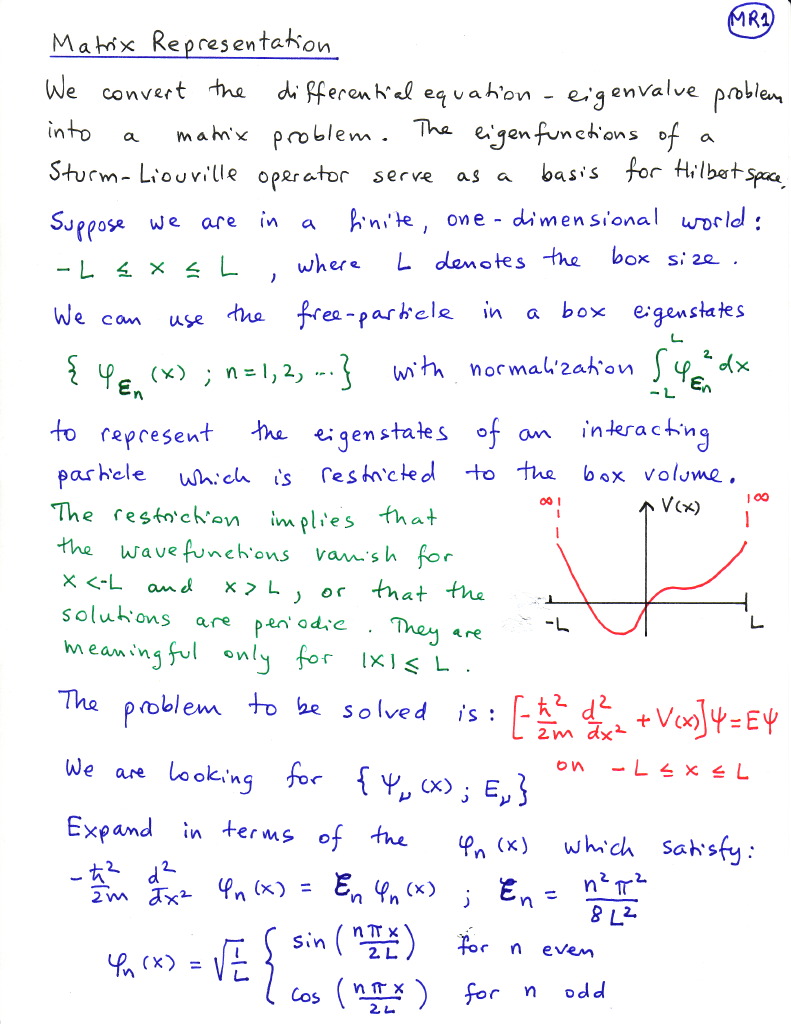 MR1
Matrix Representation
We convert the differential equation - eigenvalue problem
into a matrix problem. The eigenfunctions of a
Sturm-Liouville operator serve as a basis for Hilbert space.
Suppose we are in a finite, one-dimensional world:
-L ≤ x ≤ L , where L denotes the box size.
We can use the free-particle in a box eigenstates
{ φ_εn (x) ; n=1,2, ...} with normalization ∫_{-L}^{L} φ_εn² dx
to represent the eigenstates of an interacting
particle which is restricted to the box volume.
The restriction implies that
the wavefunctions vanish for
x <-L and x > L, or that the
solutions are periodic. They are
meaningful only for |x| ≤ L.
∞ V(x) ∞
-L L
The problem to be solved is: [-ħ²/2m d²/dx² + V(x)]ψ = Eψ
on -L ≤ x ≤ L
We are looking for { ψ_ν (x) ; E_ν }
Expand in terms of the φ_n (x) which satisfy:
-ħ²/2m d²/dx² φ_n (x) = ε_n φ_n (x) ; ε_n = n²π²/8L²
φ_n (x) = √(1/L) { sin (nπx/2L) for n even
cos (nπx/2L) for n odd